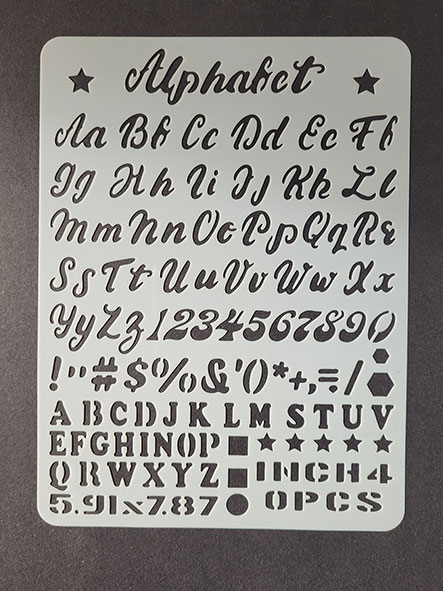 ★ Alphabet ★
Aa Bb Cc Dd Ee Ff
Gg Hh Ii Jj Kk Ll
Mm Nn Oo Pp Qq Rr
Ss Tt Uu Vv Ww Xx
Yy Zz 1234567890
!"#$%&'()*+,=./
ABCDJKLMSTUV
EFGHINOP■★★★★★
QRWXYZ■INCH 4
5.91x7.87●0PCS